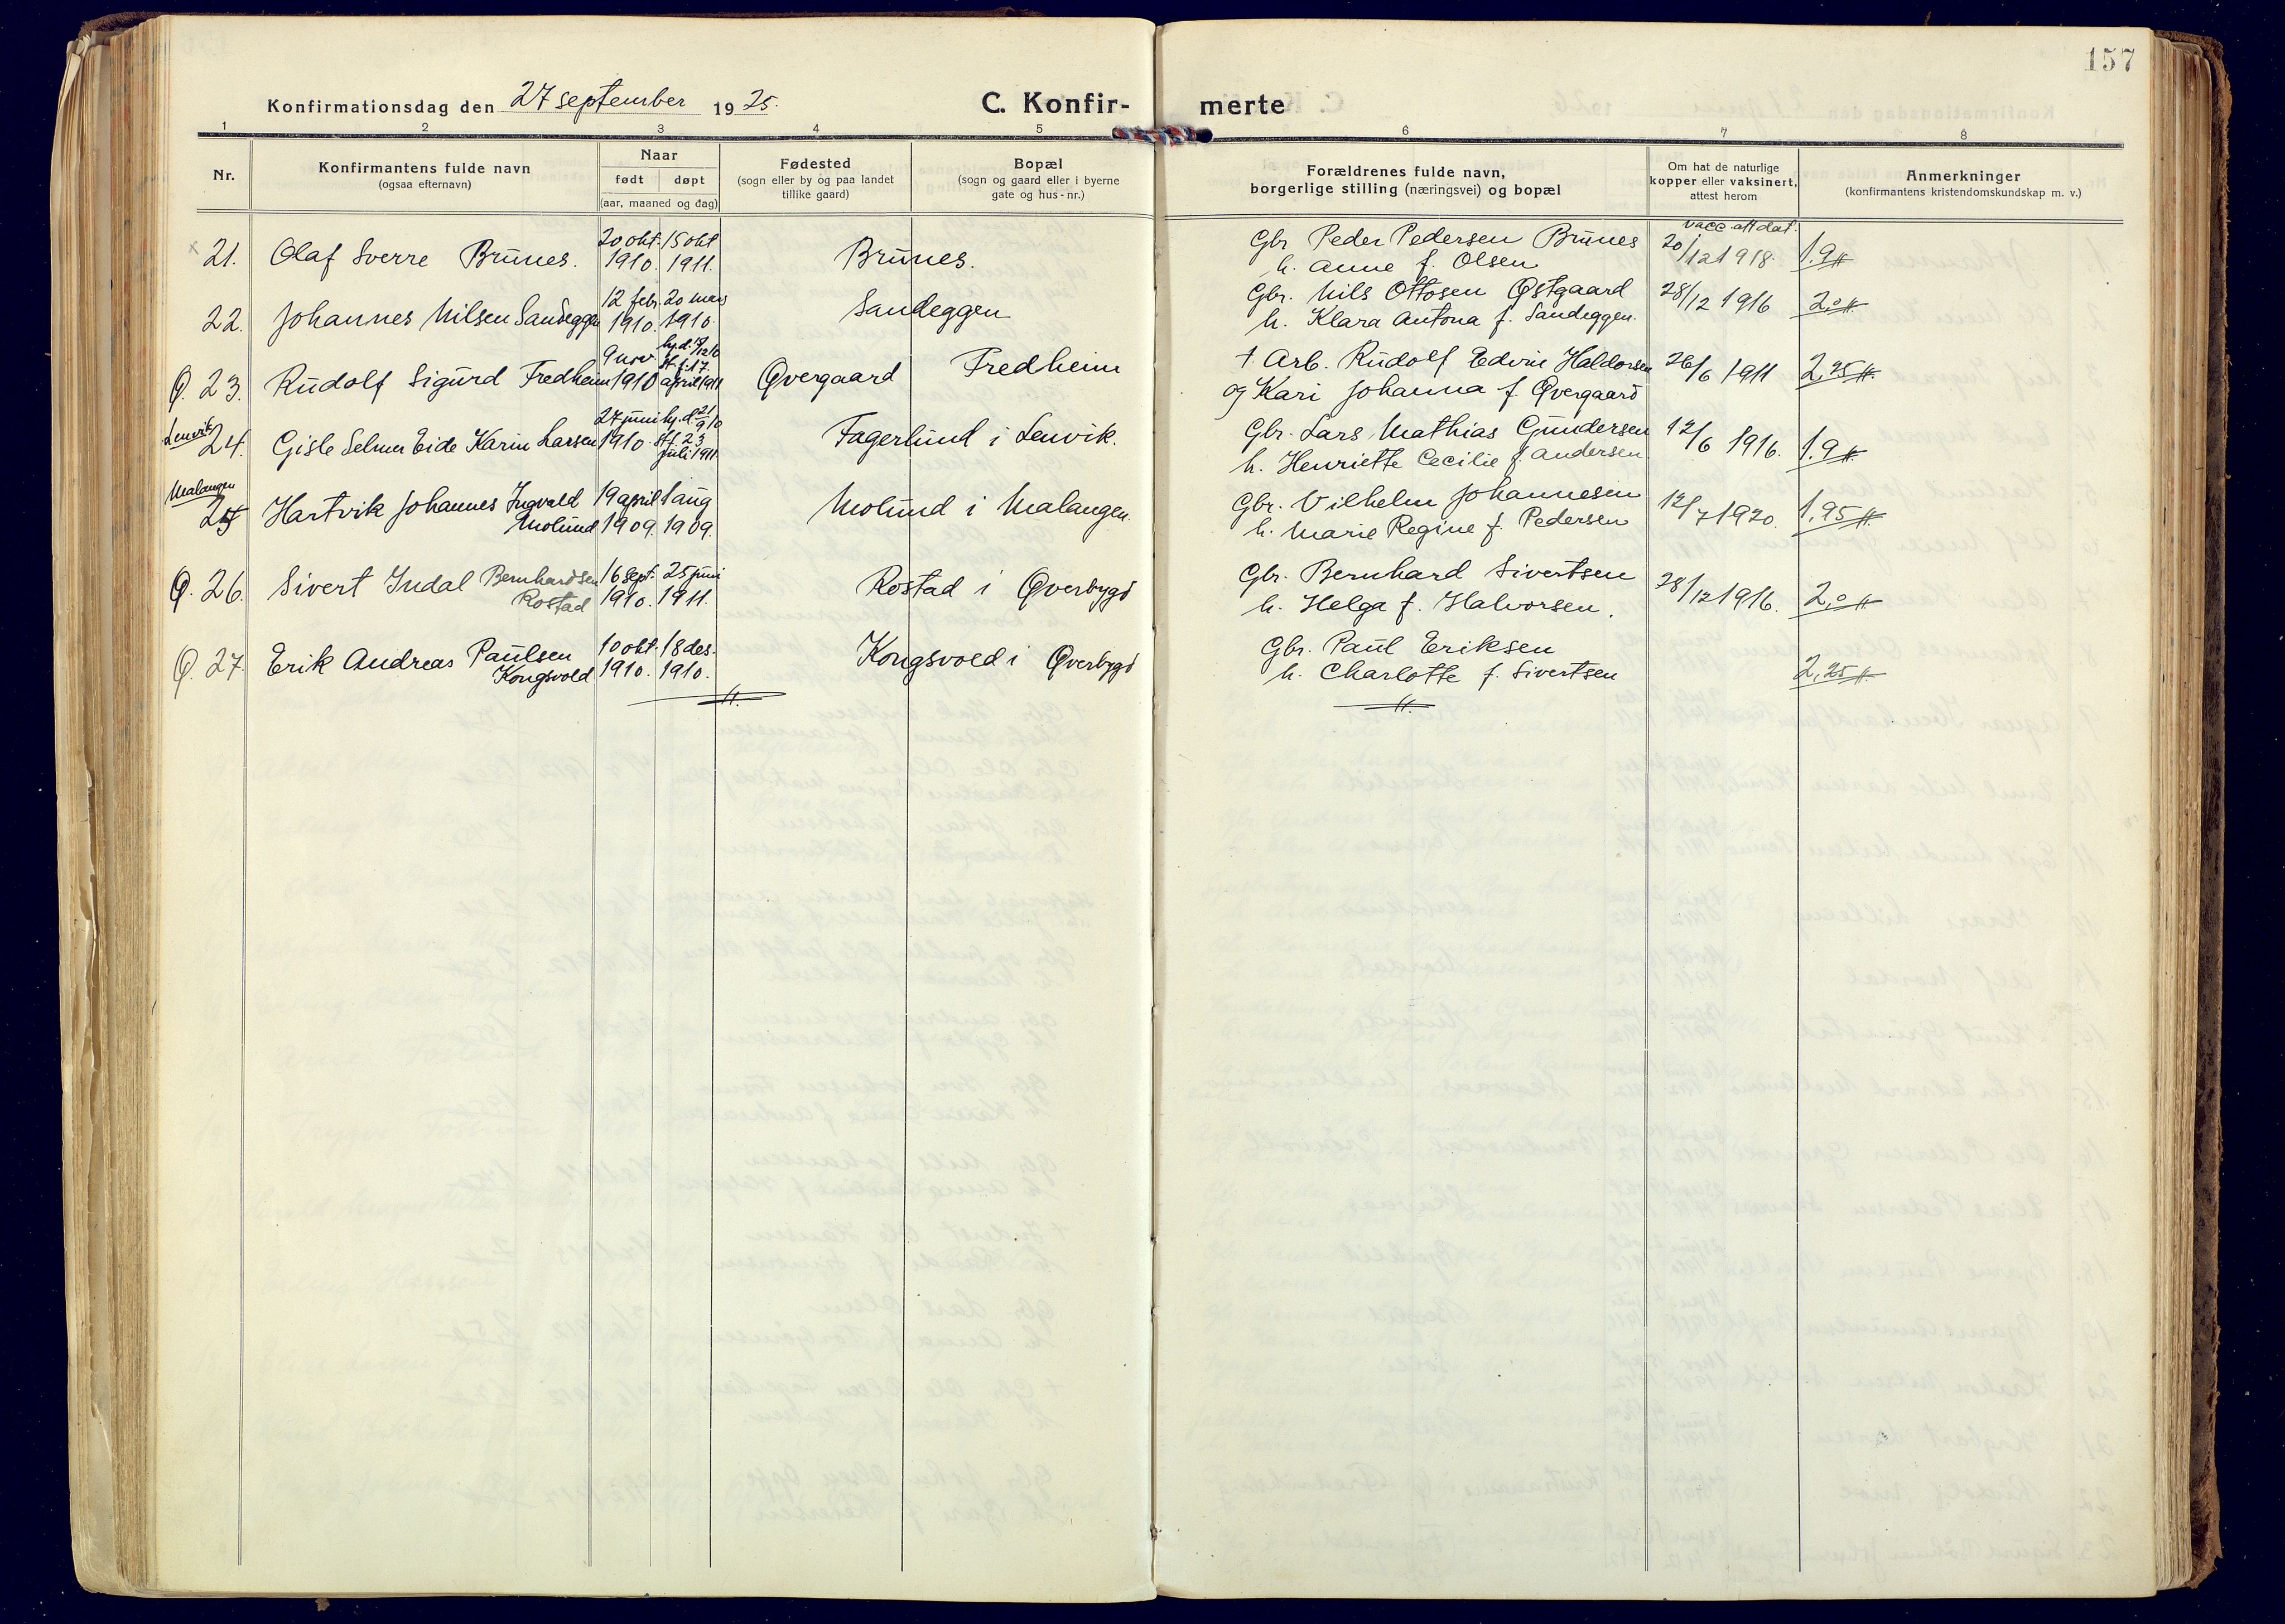 157
Konfirmationsdag den 27 september 1925.
C. Konfirmerte
1 2 3 4 5 6 7 8
Nr.
Konfirmantens fulde navn
(ogsaa efternavn)
Naar
født døpt
(aar, maaned og dag)
Fødested
(sogn eller by og paa landet
tillike gaard)
Bopæl
(sogn og gaard eller i byerne
gate og hus-nr.)
Forældrenes fulde navn,
borgerlige stilling (næringsvei) og bopæl
Om hat de naturlige
kopper eller vaksinert,
attest herom
Anmerkninger
(konfirmantens kristendomskundskap m. v.)
vacc. att. dat.
× 21. Olaf Sverre Brünes. 20 okt. 1910. 15 okt 1911. Brünes. Gbr Peder Pedersen Brünes 20/12 1918. 1.9
h. Anne f. Olsen
22. Johannes Nilsen Sandeggen 12 febr. 1910. 20 mars 1910. Sandeggen Gbr. Nils Ottosen Østgaard 28/12 1916 2,0
h. Klara Antona f. Sandeggen.
Ø. 23. Rüdolf Sigürd Fredheim 9 nov. 1910 hj.d. 18/12 10 st. f. 17 april 1911 Øvergaard Fredheim † Arb. Rüdolf Edvin Haldorsen 26/6 1911 2,25
og Kari Johanna f. Øvergaard
Lenvik 24. Gisle Selmer Eide Karin Larsen 27 jüni 1910. hj.d. 21/9 10 stf. 23 jüli 1911 Fagerlünd i Lenvik. Gbr. Lars Mathias Gündersen 12/6 1916. 1.9
h. Henriette Cecilie f. Andersen
Malangen
25 Hartvik Johannes Ingvald 19 april 1909. 1 aüg 1909. Molünd i Malangen. Gbr. Vilhelm Johannesen 12/7 1920. 1,95
Molünd h. Marie Regine f. Pedersen
Ø. 26. Sivert Indal Bernhardsen 16 sept. 1910. 25 jüni 1911. Rostad i Øverbygd Gbr. Bernhard Sivertsen 28/12 1916. 2,0
Rostad h. Helga f. Halvorsen.
Ø. 27. Erik Andreas Paülsen 10 okt. 1910. 18 des. 1910. Kongsvold i Øverbygd Gbr. Paül Eriksen
Kongsvold h. Charlotte f. Sivertsen 2,25